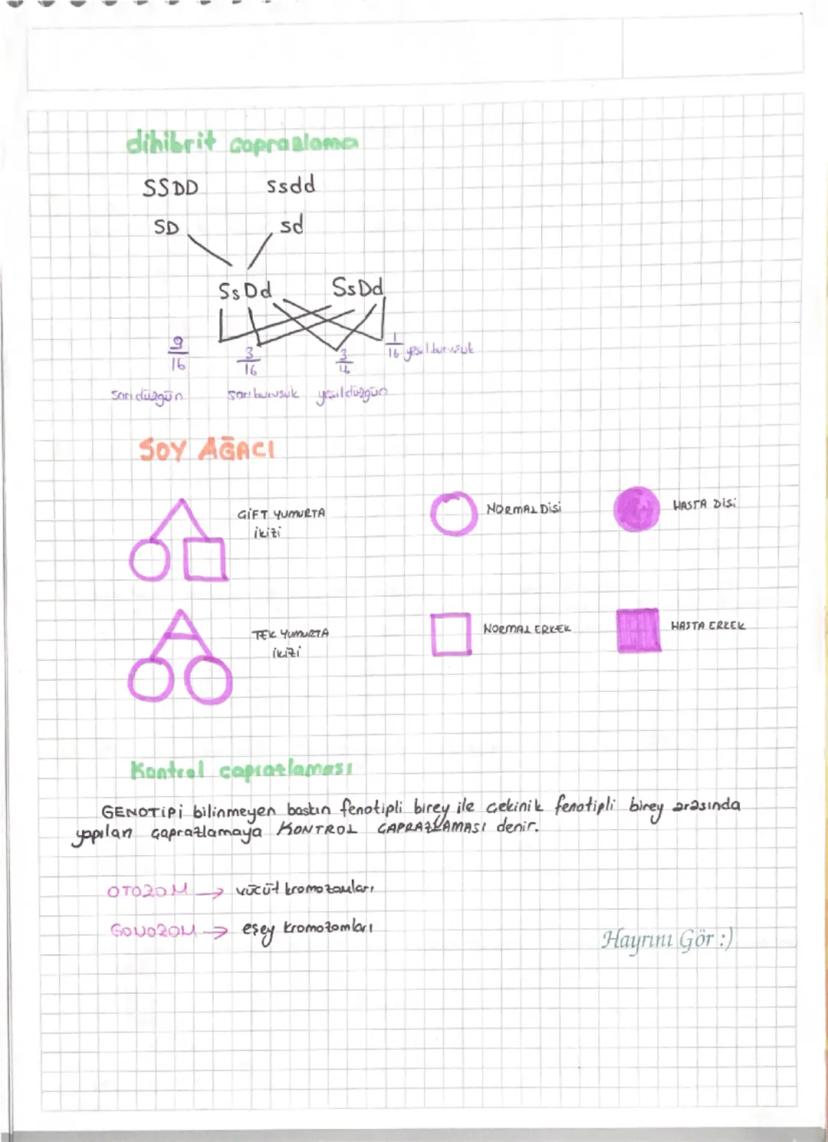 dihibrit çaprazlama
SSDD ssdd
SD sd
SsDd SsDd
9/16 3/16 3/4 1/16 yeşil buruşuk
sarı düzgün sarı buruşuk yeşil düzgün
SOY AĞACI
ÇİFT YUMURTA NORMAL DİSİ HASTA DİSİ
ikizi
TEK YUMURTA NORMAL ERKEK HASTA ERKEK
ikizi
Kontrol çaprazlaması
GENOTİPİ bilinmeyen baskın fenotipli birey ile çekinik fenotipli birey arasında
yapılan çaprazlamaya KONTROL ÇAPRAZLAMASI denir.
OTOZOM → vücüt kromozomları
GONOZOM → eşey kromozomları
Hayrını Gör :)